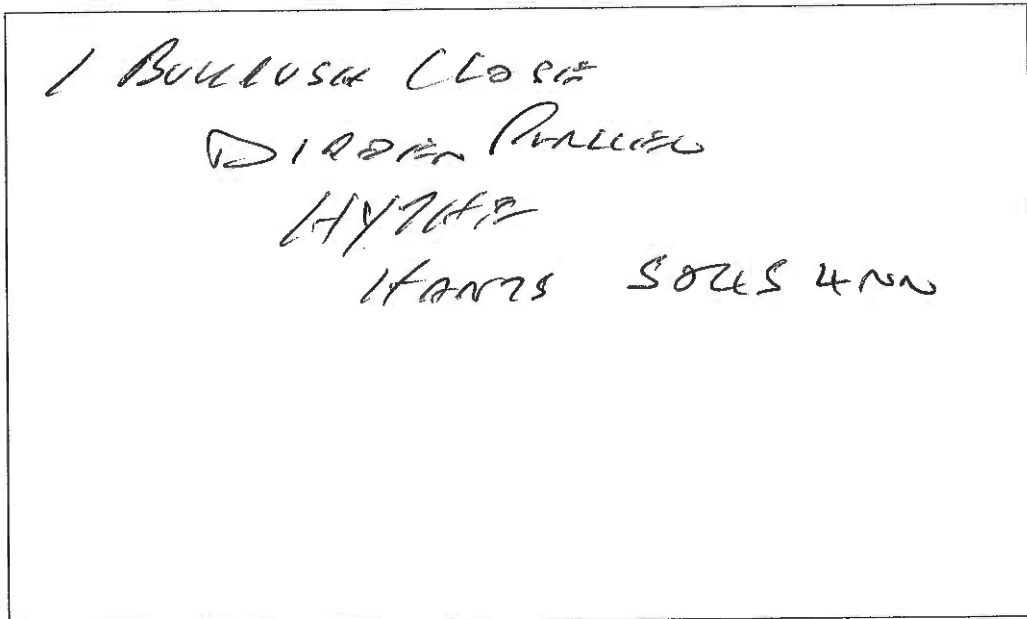 1 BULRUSH CLOSE
DIBDEN PURLIEU
HYTHE
HANTS SO45 4NN